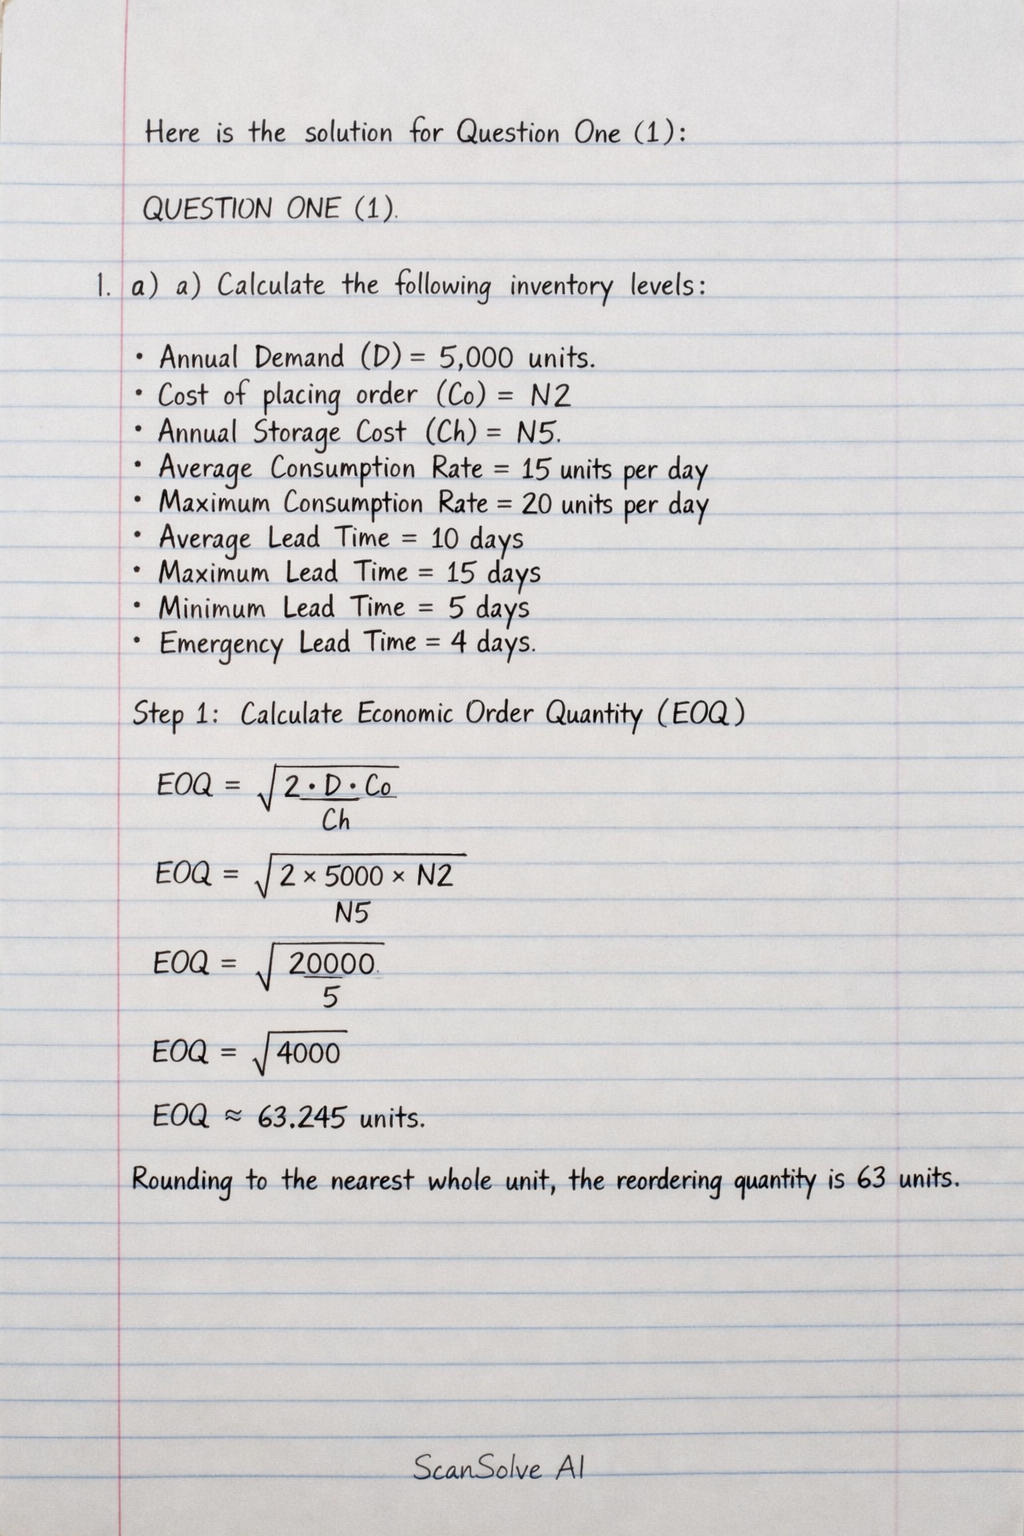 Here is the solution for Question One (1):
QUESTION ONE (1).
1. a) a) Calculate the following inventory levels:
• Annual Demand (D) = 5,000 units.
• Cost of placing order (Co) = N2
• Annual Storage Cost (Ch) = N5.
• Average Consumption Rate = 15 units per day
• Maximum Consumption Rate = 20 units per day
• Average Lead Time = 10 days
• Maximum Lead Time = 15 days
• Minimum Lead Time = 5 days
• Emergency Lead Time = 4 days.
Step 1: Calculate Economic Order Quantity (EOQ)
EOQ = √2 · D · Co
Ch
EOQ = √2 × 5000 × N2
N5
EOQ = √20000.
5
EOQ = √4000
EOQ ≈ 63.245 units.
Rounding to the nearest whole unit, the reordering quantity is 63 units.
ScanSolve AI